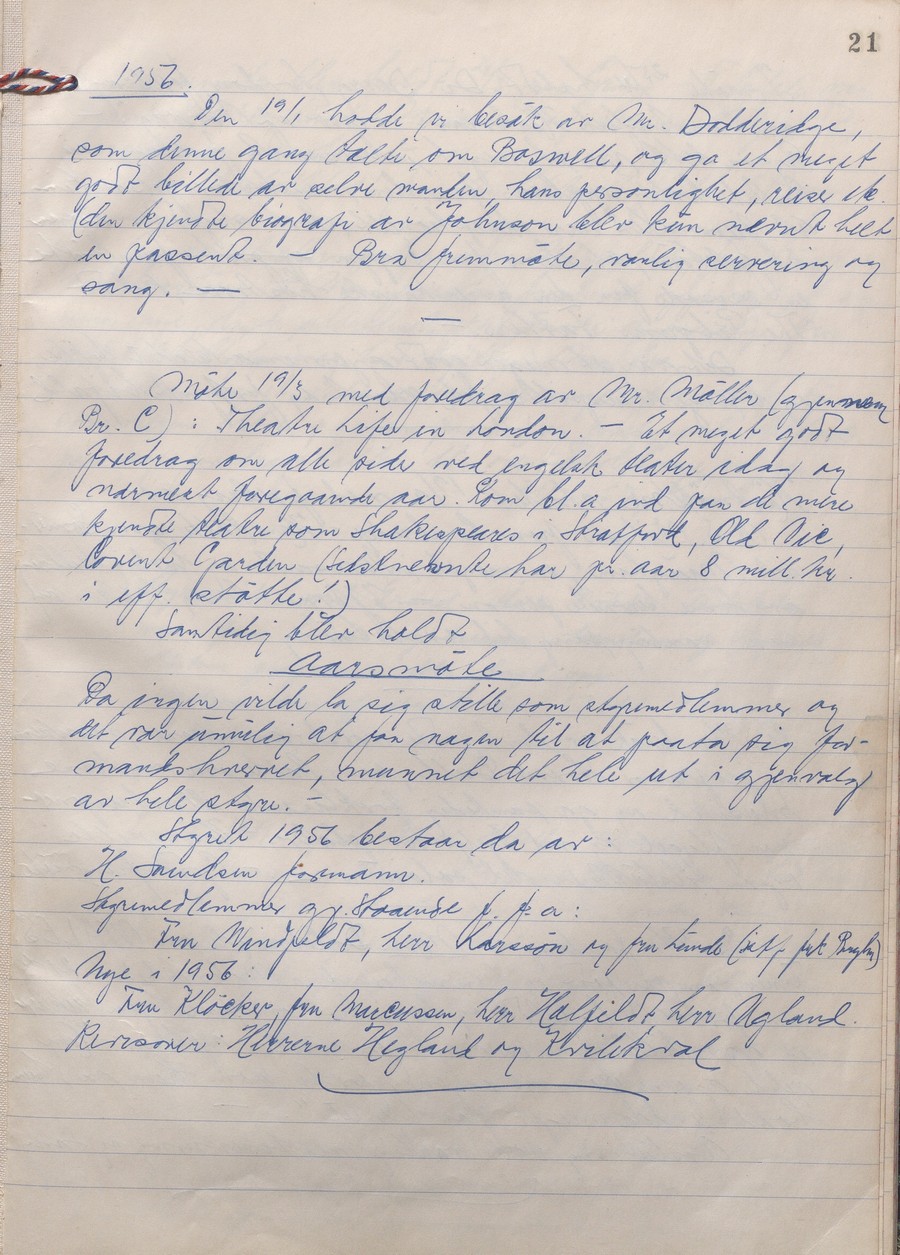 21
1956.
Den 19/1 hadde vi besøk av Mr. Dodderidge,
som denne gang talte om Boswell, og ga et meget
godt billede av selve manden, hans personlighet, reiser etc.
(den kjendte biografi av Johnson blev kun nevnt helt
en passent. — Bra fremmöte, vanlig servering og
sang. —
—
Möte 19/3 med foredrag av Mr. Möller (gjennem
Br. C) : Theatre Life in London. — Et meget godt
foredrag om alle sider ved engelsk teater idag og
nærmest foregaaende aar. Kom bl.a ind paa de mere
kjendte teatre som Shakespeares i Stratford, Old Vic,
Covent Garden (sidstnevnte har pr. aar 8 mill. kr.
i off. stötte!)
Samtidig blev holdt
Aarsmöte
Da ingen vilde la sig stille som styremedlemmer og
det var umulig at faa nogen til at paata sig for-
mandshvervet, munnet det hele ut i gjenvalg
av hele styre. —
Styret 1956 bestaar da av :
H. Svendsen formann.
Styremedlemmer gj. staaende f. f. a :
Fru Windfeldt, herr Larssön og fru Lunde
Nye i 1956 :
Fru Klöcker, fru Marcussen, herr Halfeldt herr Ugland.
Revisorer : Herrerne Hegland og Kvilekval